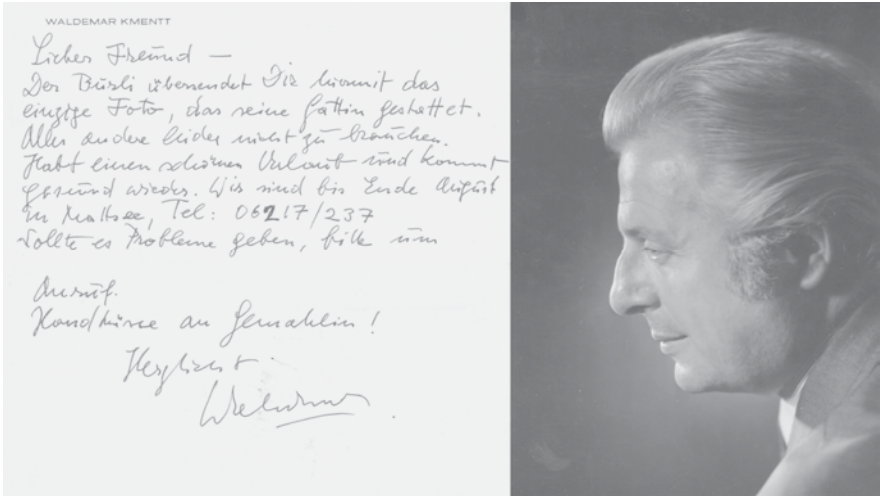 WALDEMAR KMENTT
Lieber Freund —
Der Burli übersendet Dir hiermit das
einzige Foto, das seine Gattin gestattet.
Alles andere leider nicht zu brauchen.
Habt einen schönen Urlaub und kommt
gesund wieder. Wir sind bis Ende August
in Mattsee, Tel: 06217/237
Sollte es Probleme geben, bitte um
Anruf.
Handküsse an Gemahlin!
Herzlichst
Waldemar